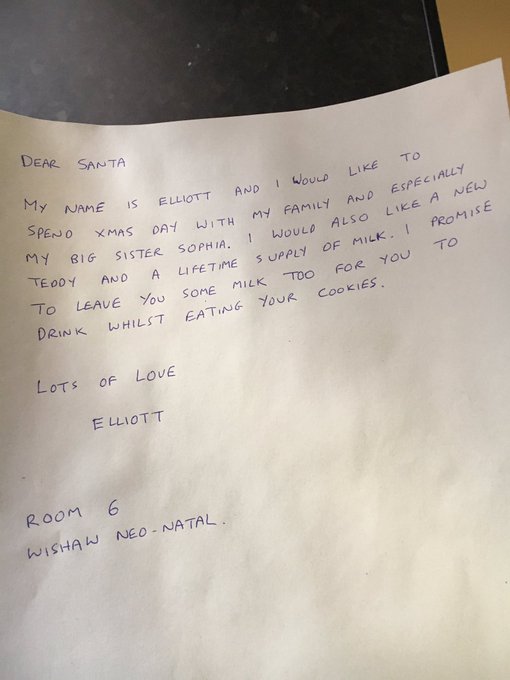 DEAR SANTA
MY NAME IS ELLIOTT AND I WOULD LIKE TO
SPEND XMAS DAY WITH MY FAMILY AND ESPECIALLY
MY BIG SISTER SOPHIA. I WOULD ALSO LIKE A NEW
TEDDY AND A LIFETIME SUPPLY OF MILK. I PROMISE
TO LEAVE YOU SOME MILK TOO FOR YOU TO
DRINK WHILST EATING YOUR COOKIES.
LOTS OF LOVE
ELLIOTT
ROOM 6
WISHAW NEO-NATAL.